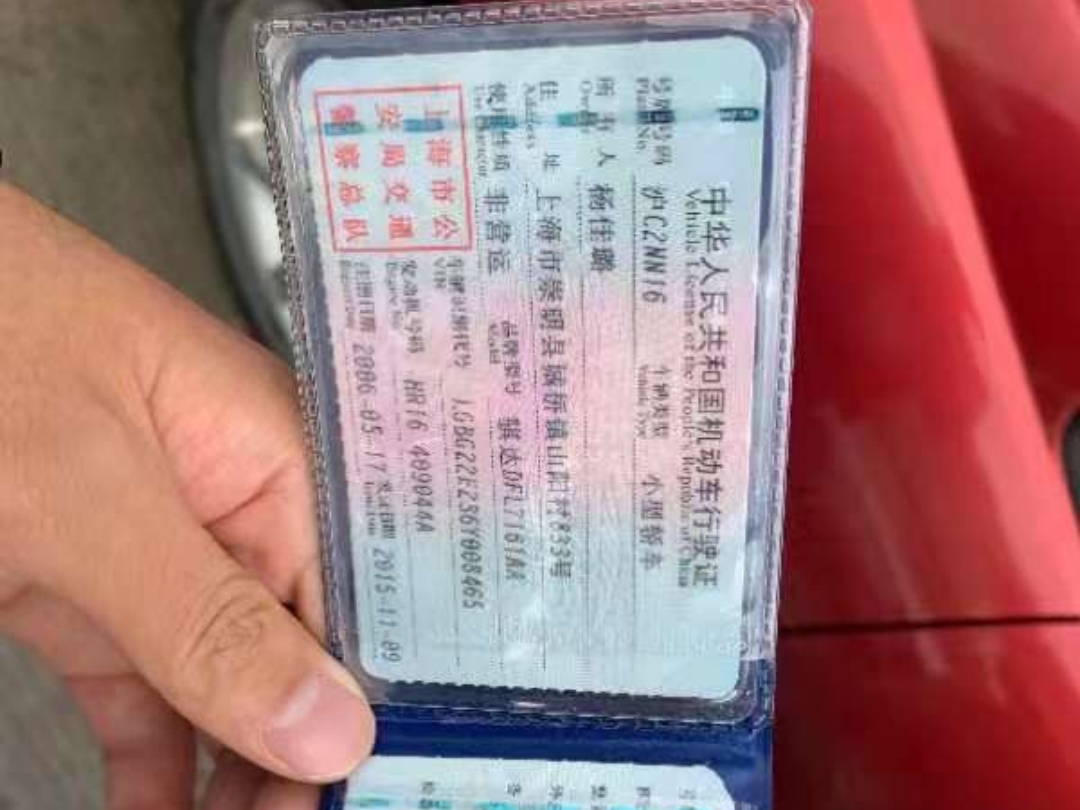 中华人民共和国机动车行驶证
Vehicle License of the People's Republic of China
号牌号码 沪C2NN16 车辆类型 小型轿车
Plate No. Vehicle Type
所有人 杨佳璐
Owner
住址 上海市崇明县城桥镇山阳村833号
Address
使用性质 非营运 品牌型号 骐达DFL7161AA
Use Character Model
上海市公
安局交通
警察总队
车辆识别代号 LGBG22E2S6Y008465
VIN
发动机号码 HR16 409044A
Engine No.
注册日期 2006-05-17 发证日期 2015-11-09
Issue Date